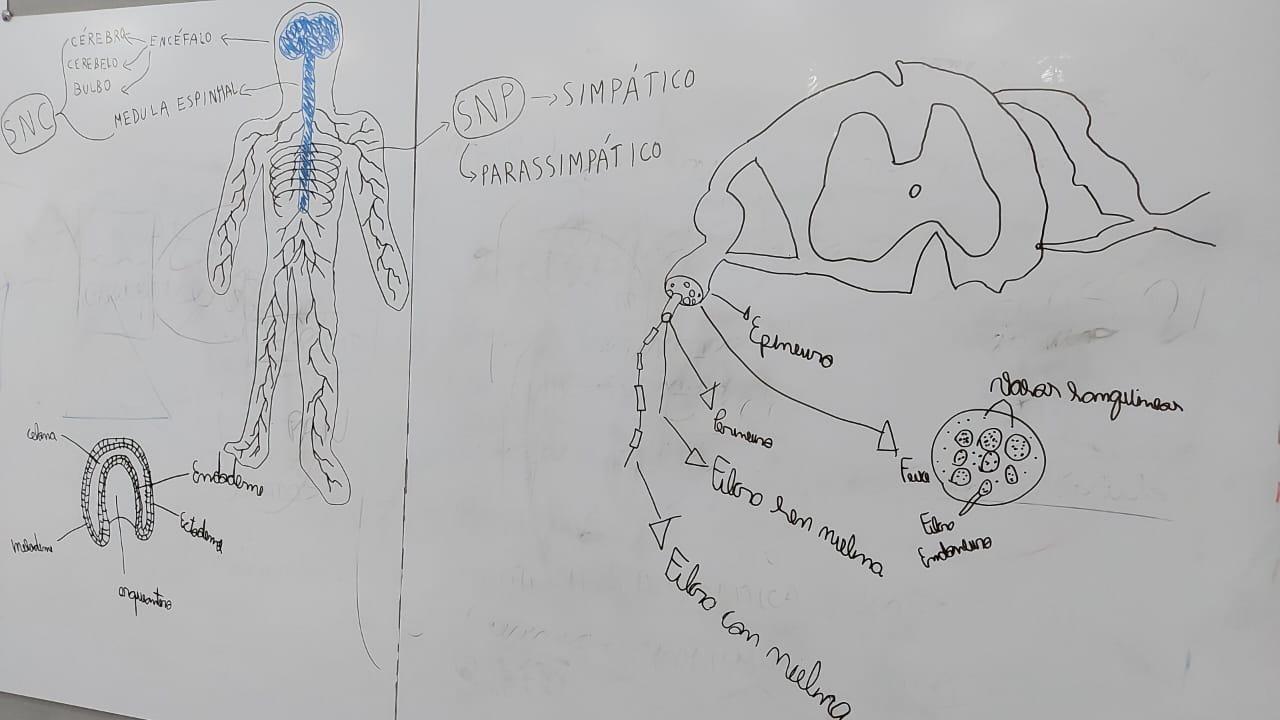 CÉREBRO
ENCÉFALO
CEREBELO
BULBO
SNC
MEDULA ESPINHAL
SNP → SIMPÁTICO
PARASSIMPÁTICO
celoma
Endoderme
Ectoderma
mesoderme
arquentero
Epineuro
Perineuro
Fibra sem mielina
Fibra com mielina
Vasos sanguíneos
Feixe
Fibra
Endoneuro